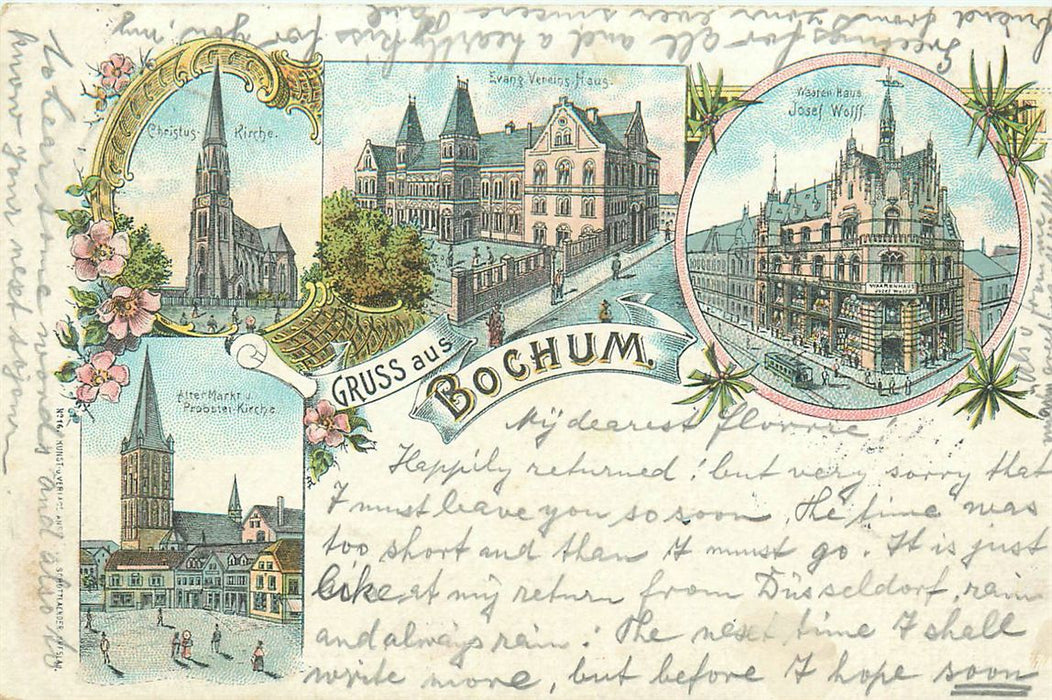 Christus-Kirche.
Evang. Vereins Haus.
Waaren Haus
Josef Wolff.
WAARENHAUS
JOSEF WOLFF
GRUSS aus
BOCHUM.
Alter Markt u.
Probstei-Kirche.
KUNST u. VERLAGS-ANST. SCHOTTLAENDER
My dearest Florrie!
Happily returned! but very sorry that
I must leave you so soon. The time was
too short and than I must go. It is just
like at my return from Düsseldorf, rain
and always rain! The next time I shall
write more, but before I hope soon
to hear some words and also to
know your next stjour
Greetings for all and a hearty kiss for you, my
friend from your ever sincere Paul